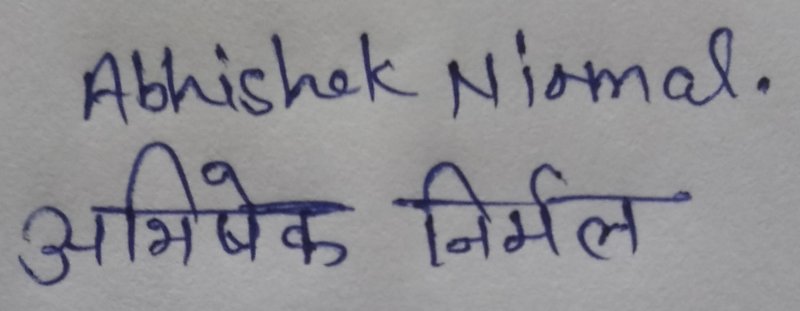 Abhishek Nirmal.
अभिषेक निर्मल